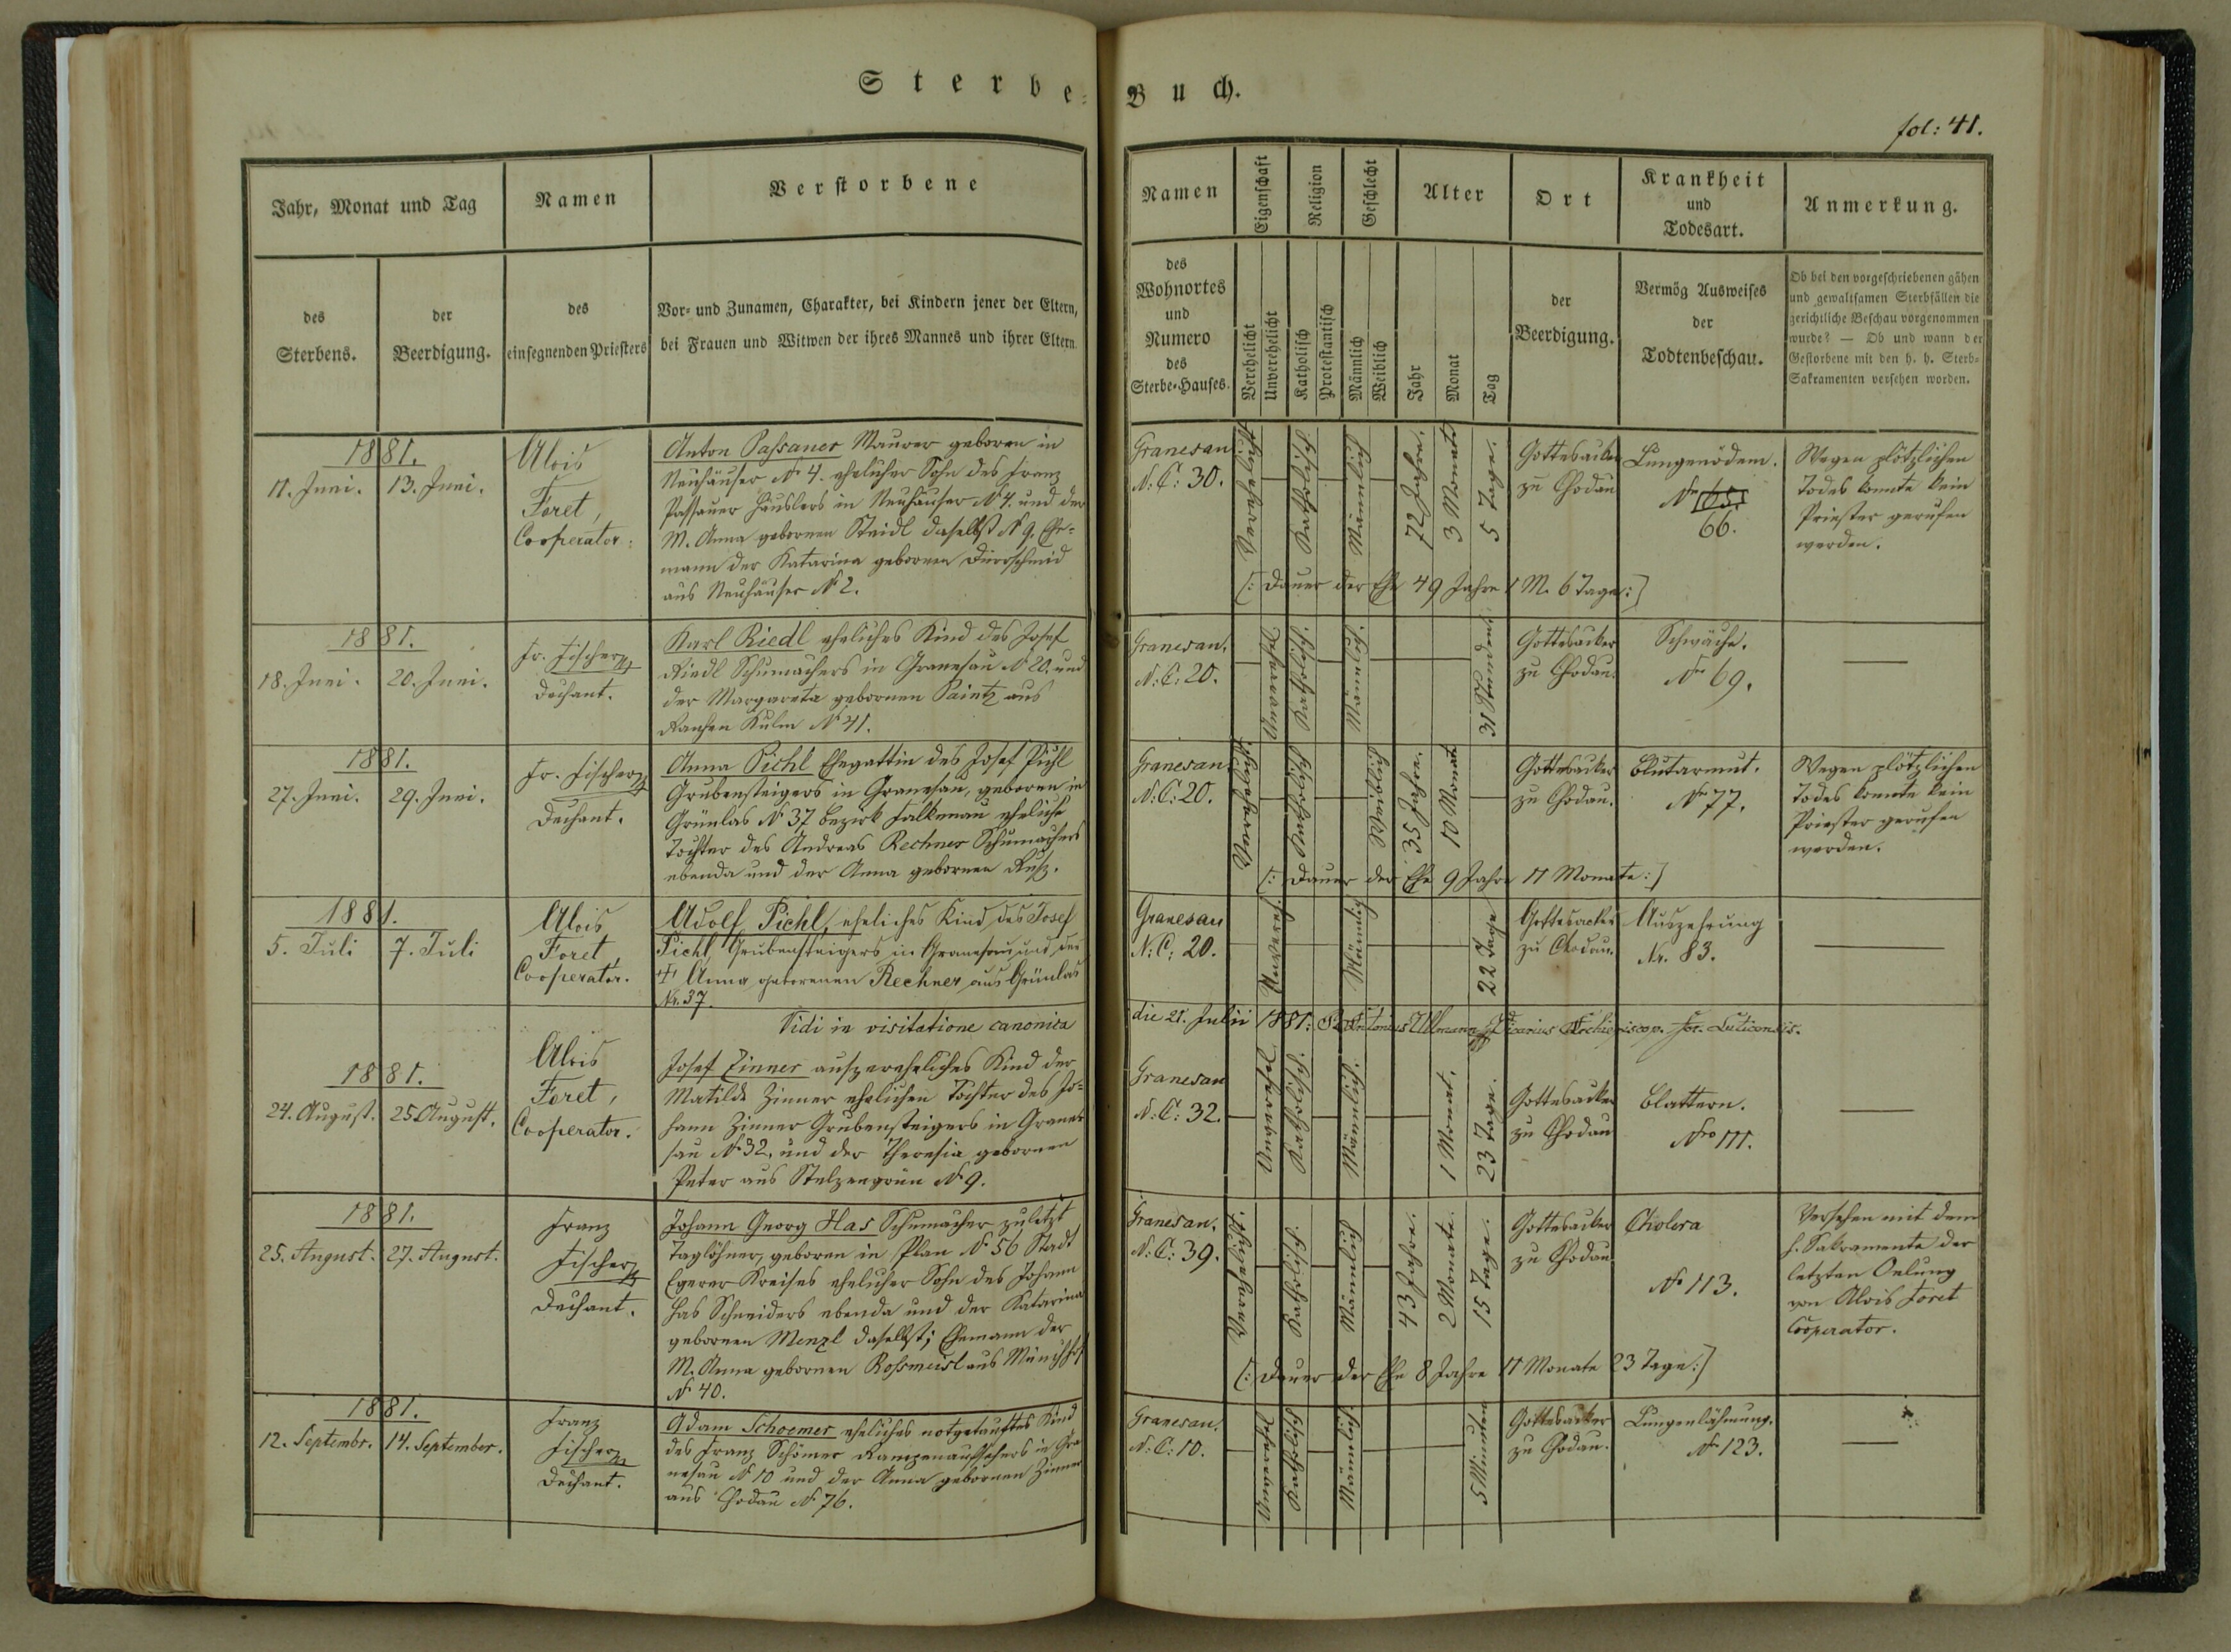 Sterbe-Buch.
fol: 41.
Jahr, Monat und Tag
Namen
Verstorbene
des
Sterbens.
der
Beerdigung.
des
einsegnenden Priesters
Vor- und Zunamen, Charakter, bei Kindern jener der Eltern,
bei Frauen und Witwen der ihres Mannes und ihrer Eltern
Namen
Eigenschaft
Religion
Geschlecht
Alter
Ort
Krankheit
und
Todesart.
Anmerkung.
des
Wohnortes
und
Numero
des
Sterbe-Hauses.
Verehelicht
Unverehelicht
Katholisch
Protestantisch
Männlich
Weiblich
Jahr
Monat
Tag
der
Beerdigung.
Vermög Ausweises
der
Todtenbeschau.
Ob bei den vorgeschriebenen gähen
und gewaltsamen Sterbfällen die
gerichtliche Beschau vorgenommen
wurde? — Ob und wann der
Gestorbene mit den h. h. Sterb-
Sakramenten versehen worden.
1881.
11. Juni.
13. Juni.
Alois
Foret,
Cooperator.
Anton Passauer Maurer geboren in
Neuhäuser N° 4. ehelicher Sohn des Franz
Passauer Häuslers in Neuhäuser N° 4. und der
M. Anna gebornen Steidl daselbst N° 9. Ehe-
mann der Katarina gebornen Dürrschmid
aus Neuhäuser N° 2.
Granesau
N: C: 30.
Verehelicht
Katholisch
Männlich
72 Jahre.
3 Monat
5 Tage.
Gottesacker
zu Chodau
Lungenödem.
Nr 65.
66.
Wegen plötzlichen
Todes konnte kein
Priester gerufen
werden.
[: Dauer der Ehe 49 Jahre 1 M. 6 Tage :]
1881.
18. Juni.
20. Juni.
Fr. Fischer
Dechant.
Karl Riedl eheliches Kind des Josef
Riedl Schumachers in Granesau N° 20. und
der Margareta gebornen Paintz aus
Rauhen Kulm N° 41.
Granesau.
N: C: 20.
Unverehel.
Katholisch.
Männlich.
31 Stunden
Gottesacker
zu Chodau.
Schwäche.
Nr 69.
1881.
27. Juni.
29. Juni.
Fr. Fischer
Dechant.
Anna Pichl Ehegattin des Josef Pichl
Grubensteigers in Granesau, geboren in
Grünlas N° 37 Bezirk Falkenau eheliche
Tochter des Andreas Rechner Schumachers
ebenda und der Anna gebornen
Granesau
N: C: 20.
Verehelicht
Katholisch
Weiblich
35 Jahre.
10 Monat
Gottesacker
zu Chodau.
Blutarmut.
N° 77.
Wegen plötzlichen
Todes konnte kein
Priester gerufen
werden.
[: Dauer der Ehe 9 Jahre 11 Monate :]
1881.
5. Juli
7. Juli
Alois
Foret,
Cooperator.
Adolf Pichl, eheliches Kind des Josef
Pichl Grubensteigers in Granesau und der
† Anna geborenen Rechner aus Grünlas
Nr. 37.
Granesau
N: C: 20.
Unverehel.
Männlich
22 Tage
Gottesacker
zu Chodau.
Auszehrung
Nr. 83.
Vidi in visitatione canonica die 21. Julii 1881: Antonius Ullmann Vicarius
1881.
24. August.
25. August.
Alois
Foret,
Cooperator.
Josef Zinner auszereheliches Kind der
Matilde Zinner ehelichen Tochter des Jo-
hann Zinner Grubensteigers in Grane-
sau N° 32, und der Theresia gebornen
Peter aus Stelzengrün N° 9.
Granesau
N: C: 32.
Unverehel
Katholisch.
Männlich.
1 Monat.
23 Tage.
Gottesacker
zu Chodau
Blattern.
Nro 111.
1881.
25. August.
27. August.
Franz
Fischer
Dechant.
Johann Georg Has Schumacher zuletzt
Taglöhner, geboren in Plan N° 56 Stadt
Egerer Kreises ehelicher Sohn des Johann
Has Schneiders ebenda und der Katarina
gebornen Menzl daselbst; Ehemann der
M. Anna gebornen Rossmeisl aus Münchhof
N° 40.
Granesau.
N: C: 39.
Verehelicht.
Katholisch.
Männlich
43 Jahre.
2 Monate.
15 Tage.
Gottesacker
zu Chodau
Cholera
N° 113.
Versehen mit dem
h. Sakramente der
letzten Oelung
von Alois Foret
Cooperator.
[: Dauer der Ehe 8 Jahre 11 Monate 23 Tage :]
1881.
12. Septembr.
14. September.
Franz
Fischer
Dechant.
Adam Schoemer eheliches notgetauftes Kind
des Franz Schömer Rampenaufsehers in Gra-
nesau N° 10 und der Anna gebornen Zinner
aus Chodau N° 76.
Granesau.
N: C: 10.
Unverehel
Katholisch
Männlich
5 Minuten
Gottesacker
zu Chodau.
Lungenlähmung.
Nr 123.